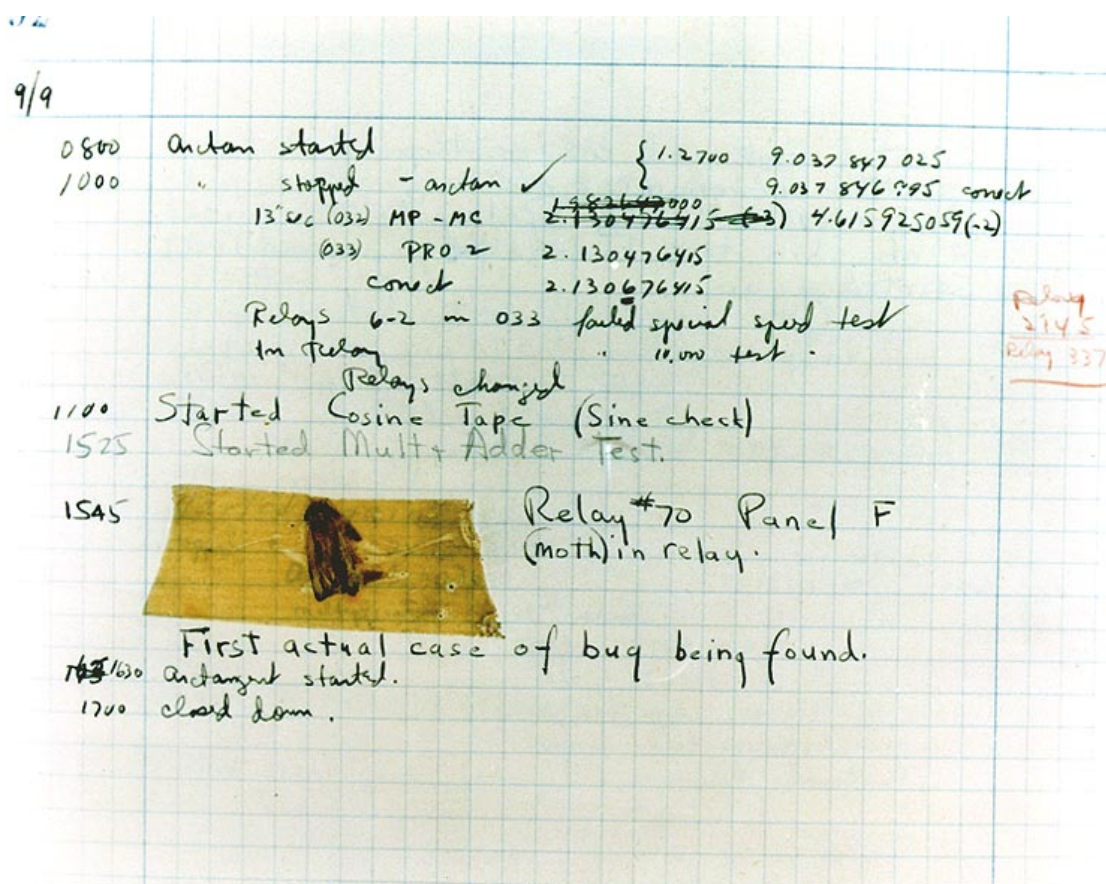 9/9
0800 antan started { 1.2700 9.037 847 025
1000 " stopped - antan ✓ 9.037 846 995 conect
13"uc (032) MP - MC 2.130476415 4.615925059(-2)
(033) PRO 2 2.130476415
conect 2.130676415
Relays 6-2 in 033 failed special speed test
In Relay " 10,000 test .
Relays changed
1100 Started Cosine Tape (Sine check)
1525 Started Mult + Adder Test.
1545 Relay #70 Panel F
(moth) in relay.
First actual case of bug being found.
1630 antangent started.
1700 closed down.
Relay
2145
Relay 337